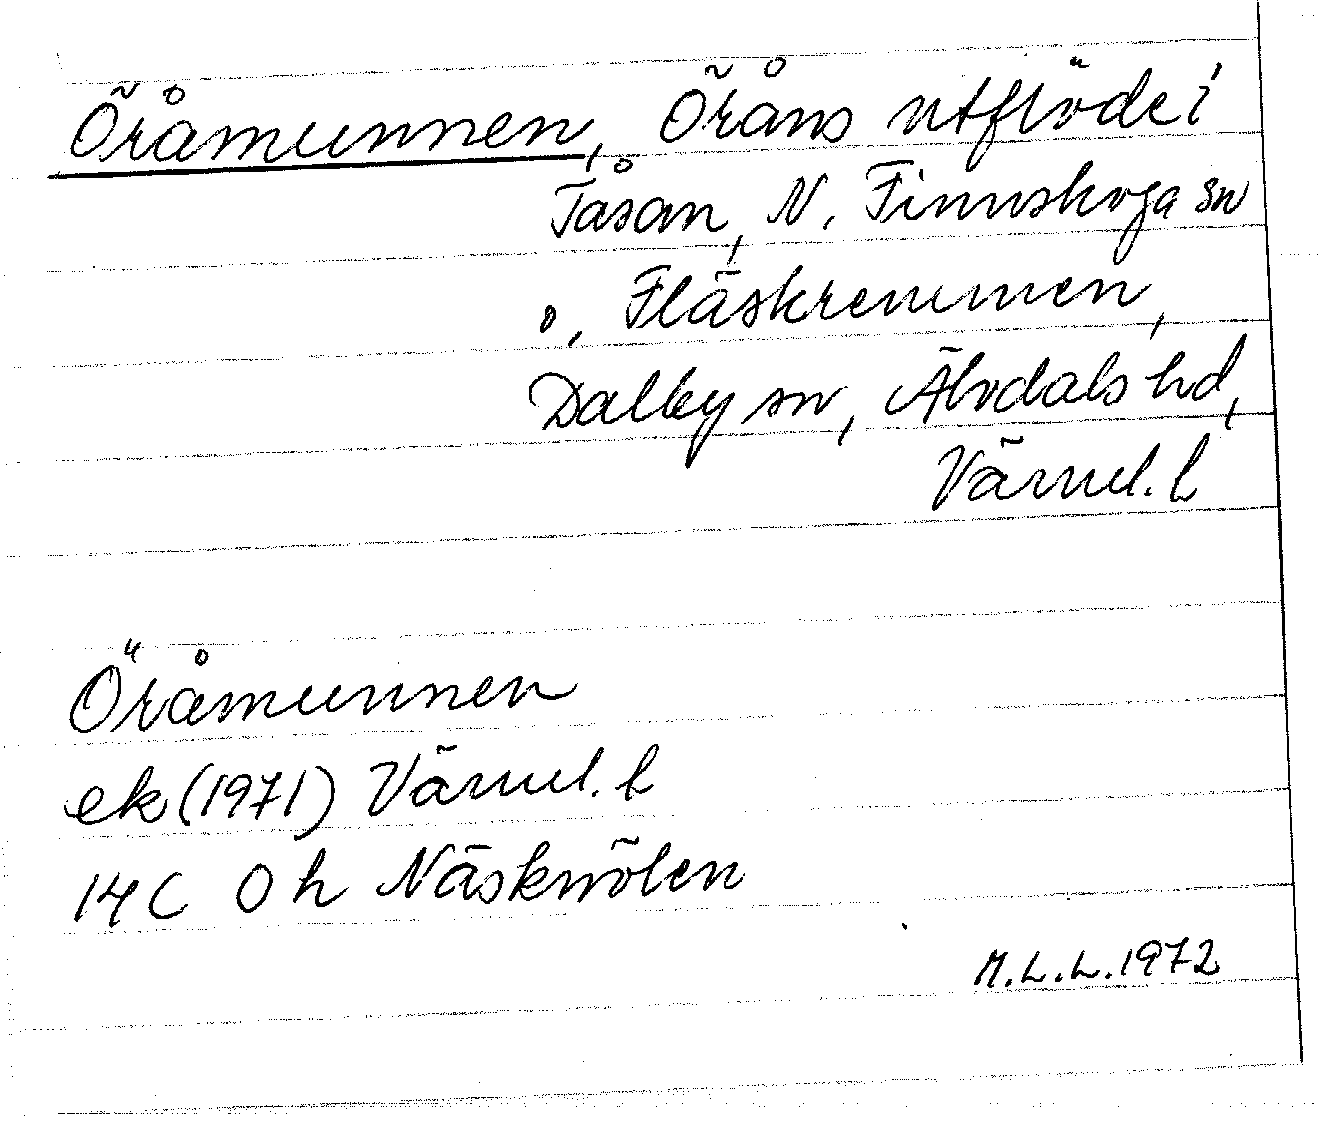 Öråmunnen, Öråns utflöde i
Tåsan, N. Finnskoga sn
o, Fläskremmen,
Dalby sn, Älvdals hd,
Värml. l
Öråmunnen
ek (1971) Värml. l
14C 0 h Näsknölen
M.L.L. 1972